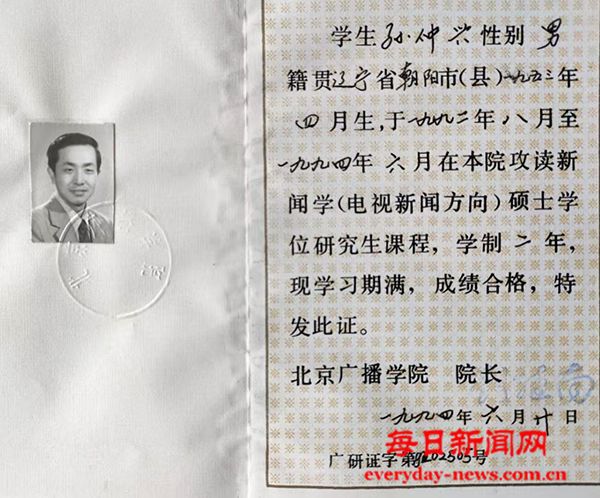 学生孙仲兴性别男
籍贯辽宁省朝阳市(县)一九五三年
四月生,于一九九二年八月至
一九九四年六月在本院攻读新
闻学(电视新闻方向)硕士学
位研究生课程,学制二年,
现学习期满,成绩合格,特
发此证。
北京广播学院 院长
一九九四年六月廿日
广研证字第 202505号
每日新闻网
everyday-news.com.cn